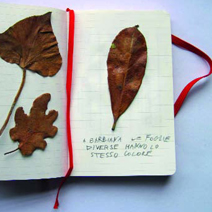 A BARBIANA LE FOGLIE
DIVERSE HANNO LO
STESSO COLORE